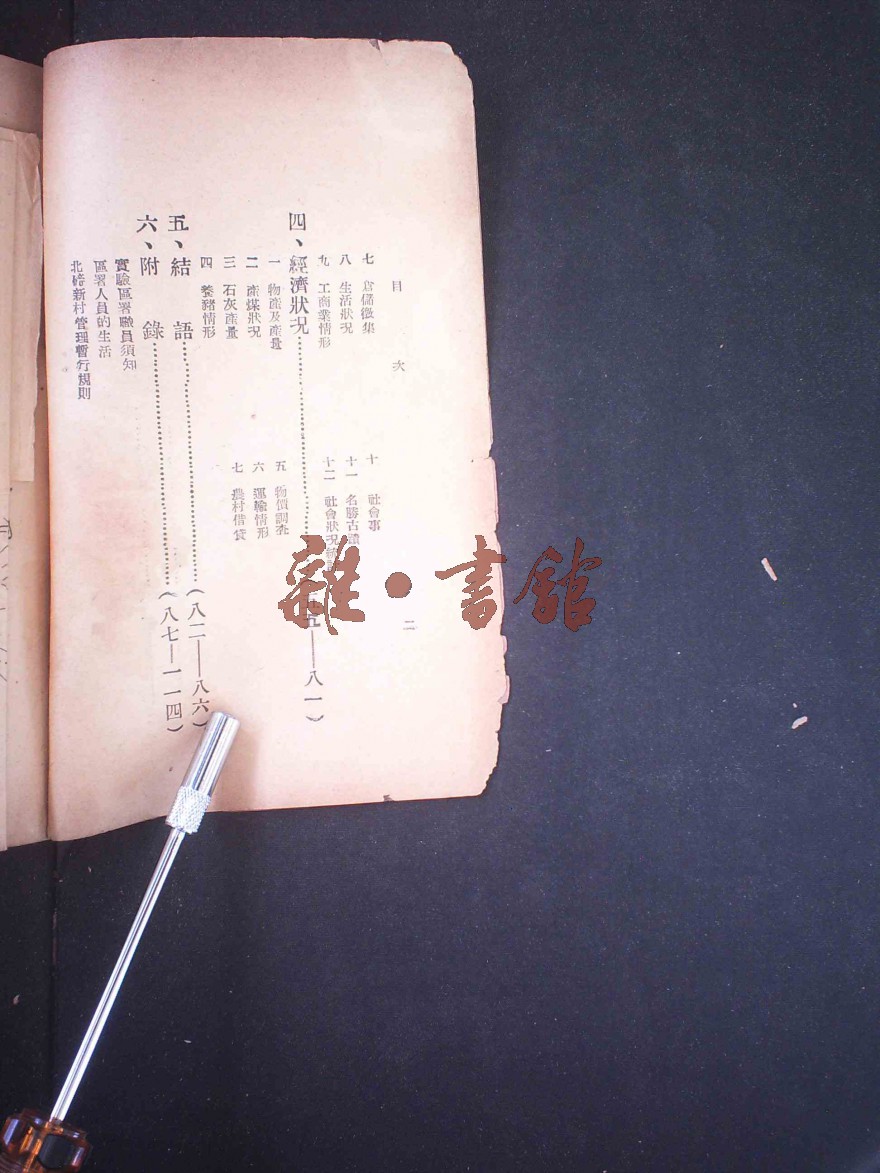 目 次 二
七 倉儲徵集 十 社會事
八 生活狀況 十一 名勝古蹟
九 工商業情形 十二 社會狀況
四、經濟狀况……五五——八一)
一 物產及產量 五 物價調查
二 產煤狀況 六 運輸情形
三 石灰產量 七 農村借貸
四 養豬情形
五、結 語……(八二——八六)
六、附 錄……(八七—一一四)
實驗區署職員須知
區署人員的生活
北碚新村管理暫行規則
雜·書館